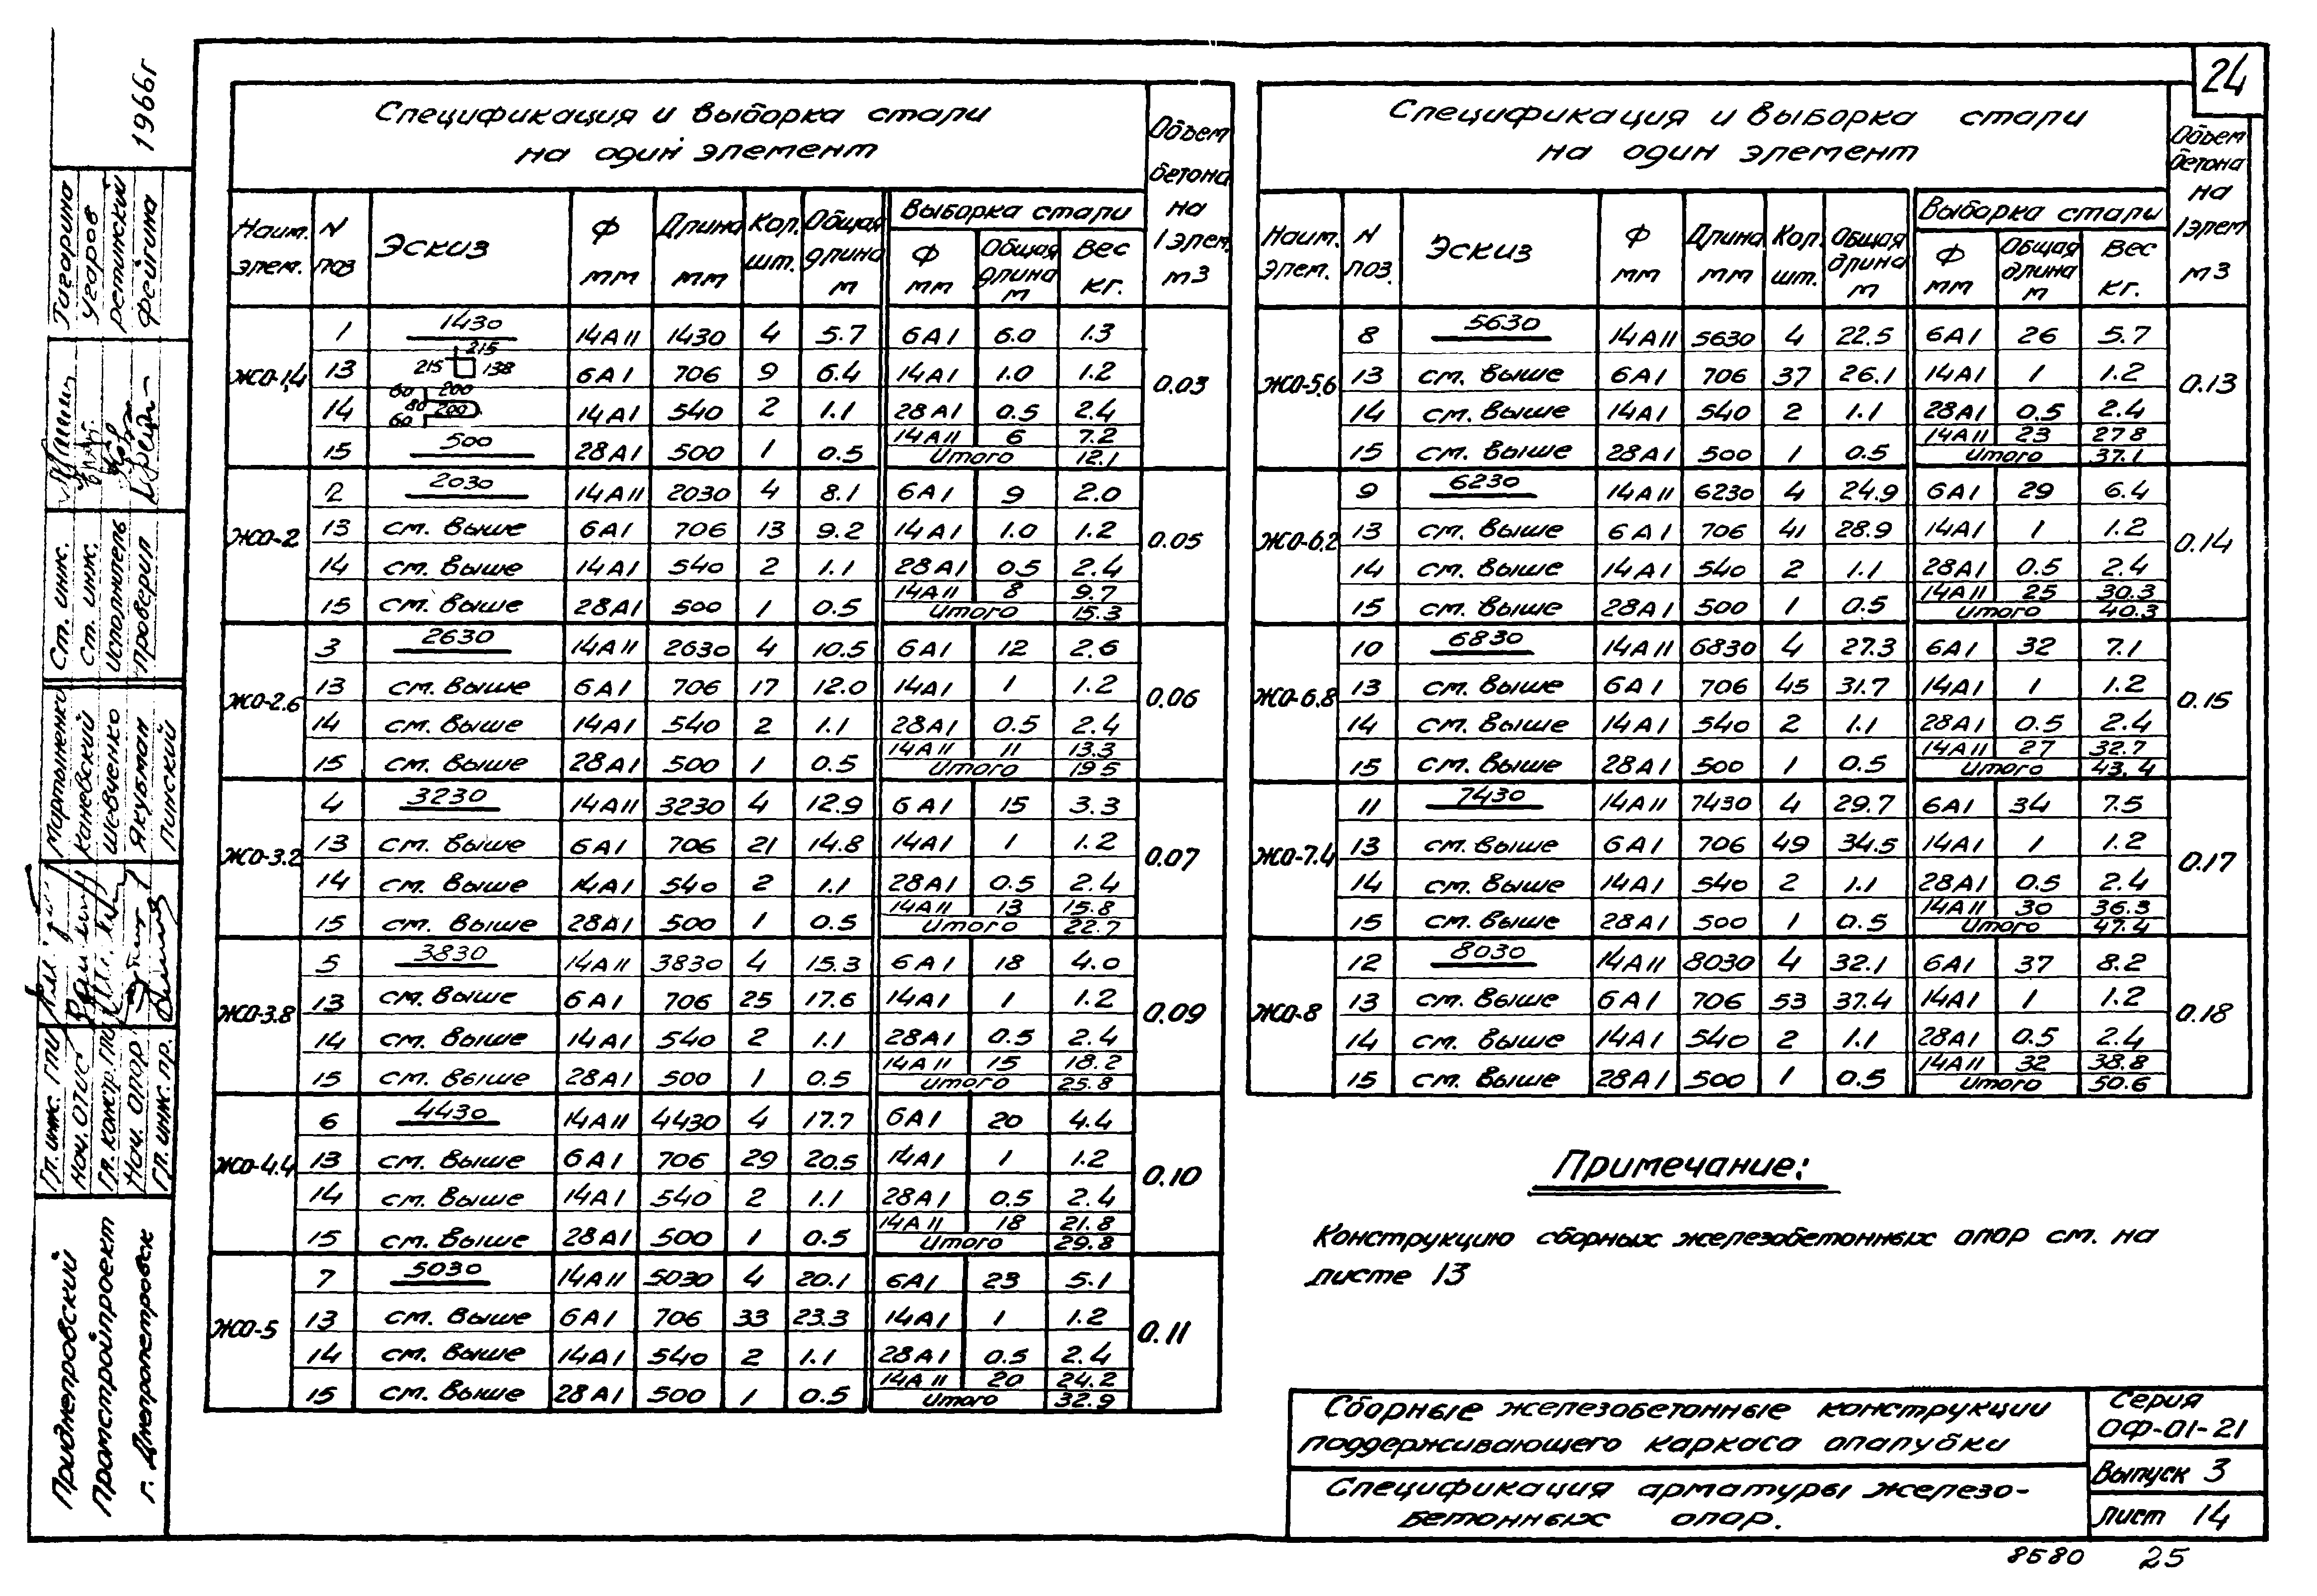 24
Спецификация и выборка стали
на один элемент
Объем бетона на 1 элем. м3
Наим. элем. N поз Эскиз Ф мм Длина мм Кол. шт. Общая длина м Выборка стали
Ф мм Общая длина м Вес кг.
ЖО-1,4 0.03
1 1430 14АII 1430 4 5.7 6АI 6.0 1.3
13 215 215 138 6АI 706 9 6.4 14АI 1.0 1.2
14 60 200 80 200 60 14АI 540 2 1.1 28АI 0.5 2.4
14АII 6 7.2
15 500 28АI 500 1 0.5 Итого 12.1
ЖО-2 0.05
2 2030 14АII 2030 4 8.1 6АI 9 2.0
13 см. выше 6АI 706 13 9.2 14АI 1.0 1.2
14 см. выше 14АI 540 2 1.1 28АI 0.5 2.4
14АII 8 9.7
15 см. выше 28АI 500 1 0.5 Итого 15.3
ЖО-2.6 0.06
3 2630 14АII 2630 4 10.5 6АI 12 2.6
13 см. выше 6АI 706 17 12.0 14АI 1 1.2
14 см. выше 14АI 540 2 1.1 28АI 0.5 2.4
14АII 11 13.3
15 см. выше 28АI 500 1 0.5 Итого 19 5
ЖО-3.2 0.07
4 3230 14АII 3230 4 12.9 6АI 15 3.3
13 см. выше 6АI 706 21 14.8 14АI 1 1.2
14 см. выше 14АI 540 2 1.1 28АI 0.5 2.4
14АII 13 15.8
15 см. выше 28АI 500 1 0.5 Итого 22.7
ЖО-3.8 0.09
5 3830 14АII 3830 4 15.3 6АI 18 4.0
13 см. выше 6АI 706 25 17.6 14АI 1 1.2
14 см. выше 14АI 540 2 1.1 28АI 0.5 2.4
14АII 15 18.2
15 см. выше 28АI 500 1 0.5 Итого 25.8
ЖО-4.4 0.10
6 4430 14АII 4430 4 17.7 6АI 20 4.4
13 см. выше 6АI 706 29 20.5 14АI 1 1.2
14 см. выше 14АI 540 2 1.1 28АI 0.5 2.4
14АII 18 21.8
15 см. выше 28АI 500 1 0.5 Итого 29.8
ЖО-5 0.11
7 5030 14АII 5030 4 20.1 6АI 23 5.1
13 см. выше 6АI 706 33 23.3 14АI 1 1.2
14 см. выше 14АI 540 2 1.1 28АI 0.5 2.4
14АII 20 24.2
15 см. выше 28АI 500 1 0.5 Итого 32.9
Спецификация и выборка стали
на один элемент
Объем бетона на 1 элем м3
Наим. элем. N поз. Эскиз Ф мм Длина мм Кол. шт. Общая длина м Выборка стали
Ф мм Общая длина м Вес кг.
ЖО-5.6 0.13
8 5630 14АII 5630 4 22.5 6АI 26 5.7
13 см. выше 6АI 706 37 26.1 14АI 1 1.2
14 см. выше 14АI 540 2 1.1 28АI 0.5 2.4
14АII 23 27 8
15 см. выше 28АI 500 1 0.5 Итого 37.1
ЖО-6.2 0.14
9 6230 14АII 6230 4 24.9 6АI 29 6.4
13 см. выше 6АI 706 41 28.9 14АI 1 1.2
14 см. выше 14АI 540 2 1.1 28АI 0.5 2.4
14АII 25 30.3
15 см. выше 28АI 500 1 0.5 Итого 40.3
ЖО-6.8 0.15
10 6830 14АII 6830 4 27.3 6АI 32 7.1
13 см. выше 6АI 706 45 31.7 14АI 1 1.2
14 см. выше 14АI 540 2 1.1 28АI 0.5 2.4
14АII 27 32.7
15 см. выше 28АI 500 1 0.5 Итого 43.4
ЖО-7.4 0.17
11 7430 14АII 7430 4 29.7 6АI 34 7.5
13 см. выше 6АI 706 49 34.5 14АI 1 1.2
14 см. выше 14АI 540 2 1.1 28АI 0.5 2.4
14АII 30 36.3
15 см. выше 28АI 500 1 0.5 Итого 47.4
ЖО-8 0.18
12 8030 14АII 8030 4 32.1 6АI 37 8.2
13 см. выше 6АI 706 53 37.4 14АI 1 1.2
14 см. выше 14АI 540 2 1.1 28АI 0.5 2.4
14АII 32 38.8
15 см. выше 28АI 500 1 0.5 Итого 50.6
Примечание:
Конструкцию сборных железобетонных опор см. на
листе 13
Сборные железобетонные конструкции
поддерживающего каркаса опалубки
Спецификация арматуры железо-
бетонных опор.
Серия
ОФ-01-21
Выпуск 3
Лист 14
8580 25
1966г
Тигорина
Угаров
Ретинский
Фейгина
Ст. инж.
Ст. инж.
Исполнитель
Проверил
Мартыненко
Каневский
Шевченко
Якубман
Пинский
Гл. инж. ГПИ
Нач. ОТИС
Гл. констр. ГПИ
Нач. ОПОР
Гл. инж. пр.
Приднепровский
Промстройпроект
г. Днепропетровск